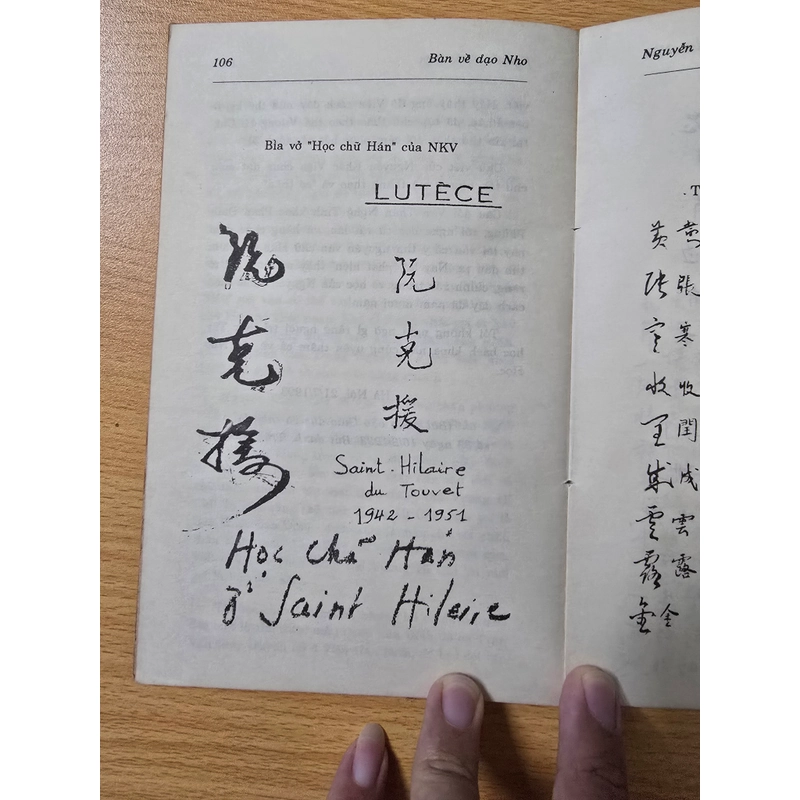 106 Bàn về đạo Nho
Bìa vở "Học chữ Hán" của NKV
LUTÈCE
阮 阮
克 克
援 援
Saint-Hilaire
du Touvet
1942 - 1951
Học chữ Hán
ở Saint Hilaire
Nguyễn
黄 黄
张 張
寒 寒
收 收
閏 閏
成 成
雲 雲
露 露
金 金